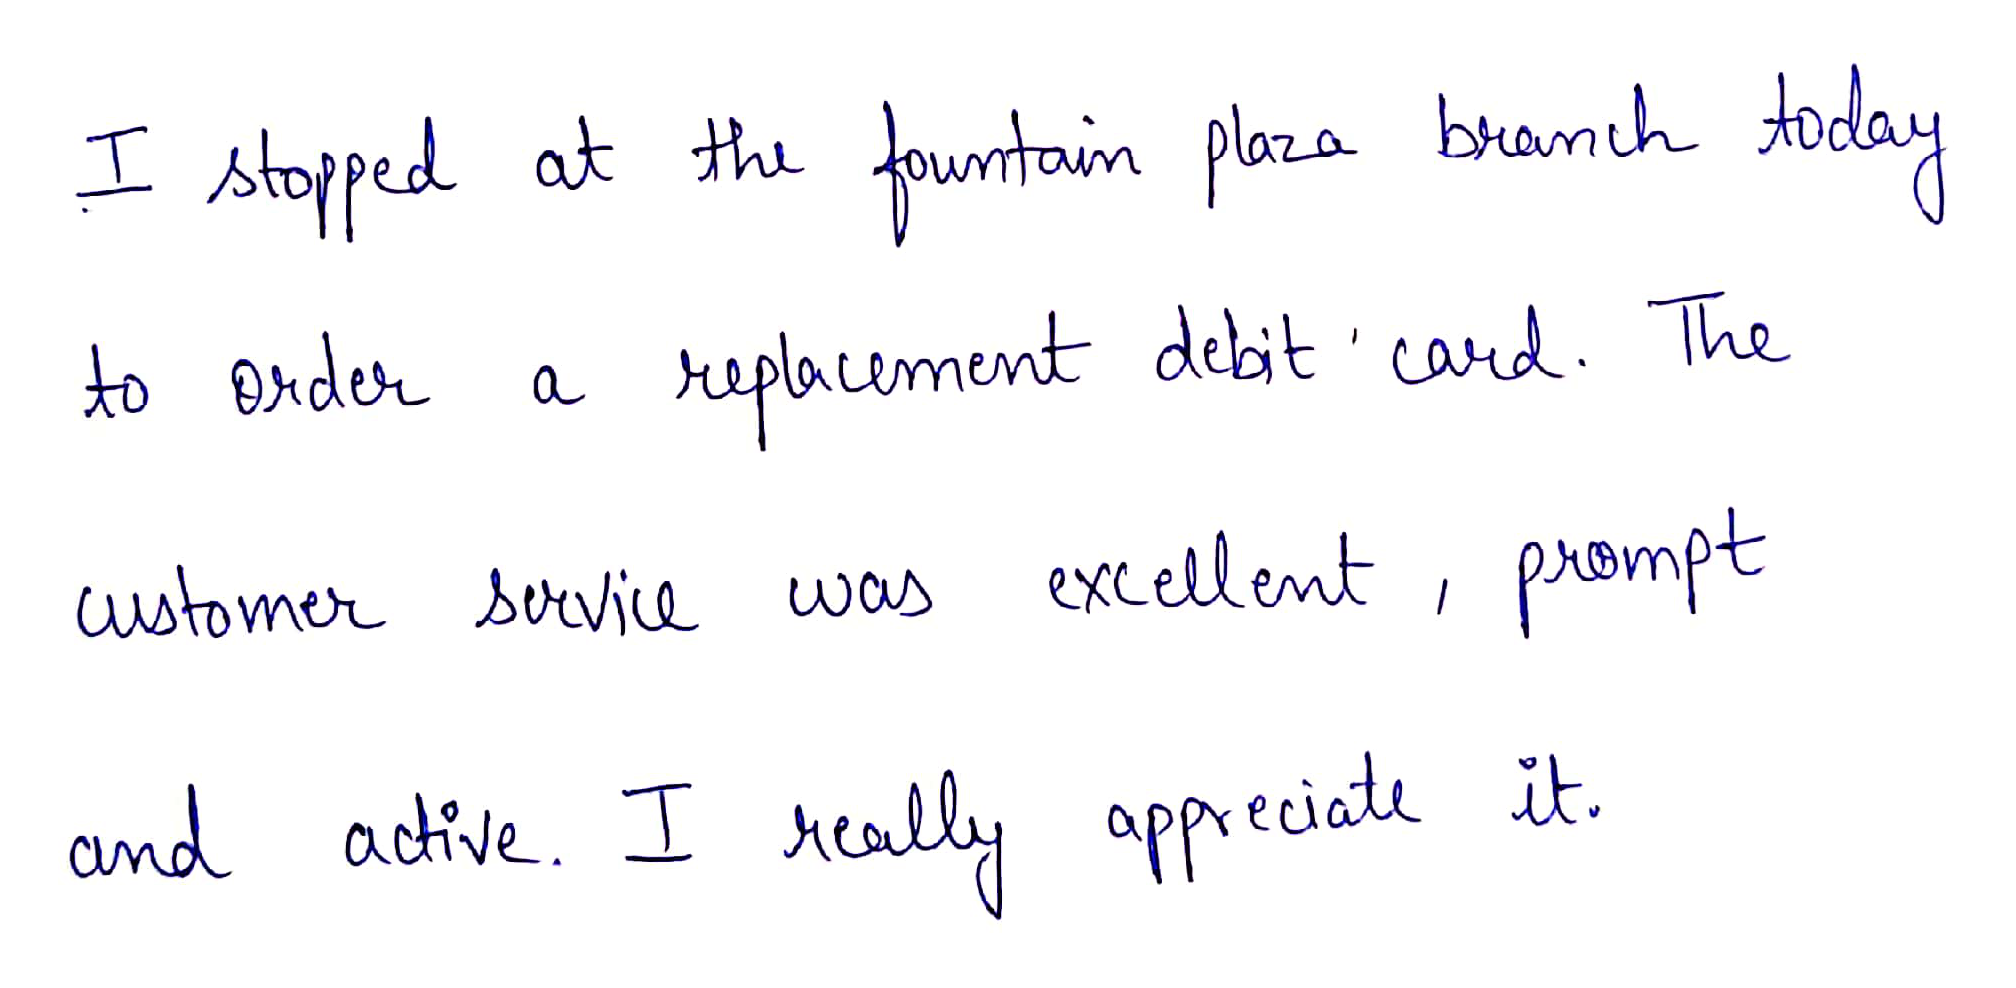 I stopped at the fountain plaza branch today
to order a replacement debit card. The
customer service was excellent, prompt
and active. I really appreciate it.